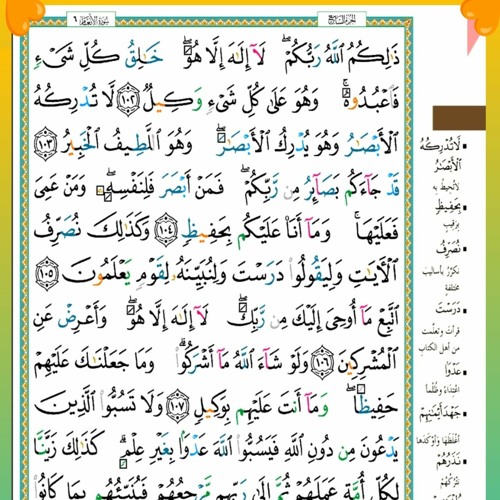 سُورَةُ الأَنْعَامِ ٦
الجزء السابع
ذَٰلِكُمُ ٱللَّهُ رَبُّكُمْ ۖ لَآ إِلَٰهَ إِلَّا هُوَ ۖ خَٰلِقُ كُلِّ شَىْءٍ
فَٱعْبُدُوهُ ۚ وَهُوَ عَلَىٰ كُلِّ شَىْءٍ وَكِيلٌ ١٠٢ لَّا تُدْرِكُهُ
ٱلْأَبْصَٰرُ وَهُوَ يُدْرِكُ ٱلْأَبْصَٰرَ ۖ وَهُوَ ٱللَّطِيفُ ٱلْخَبِيرُ ١٠٣
قَدْ جَآءَكُم بَصَآئِرُ مِن رَّبِّكُمْ ۖ فَمَنْ أَبْصَرَ فَلِنَفْسِهِۦ ۖ وَمَنْ عَمِىَ
فَعَلَيْهَا ۚ وَمَآ أَنَا۠ عَلَيْكُم بِحَفِيظٍ ١٠٤ وَكَذَٰلِكَ نُصَرِّفُ
ٱلْءَايَٰتِ وَلِيَقُولُوا۟ دَرَسْتَ وَلِنُبَيِّنَهُۥ لِقَوْمٍ يَعْلَمُونَ ١٠٥
ٱتَّبِعْ مَآ أُوحِىَ إِلَيْكَ مِن رَّبِّكَ ۖ لَآ إِلَٰهَ إِلَّا هُوَ ۖ وَأَعْرِضْ عَنِ
ٱلْمُشْرِكِينَ ١٠٦ وَلَوْ شَآءَ ٱللَّهُ مَآ أَشْرَكُوا۟ ۗ وَمَا جَعَلْنَٰكَ عَلَيْهِمْ
حَفِيظًا ۖ وَمَآ أَنتَ عَلَيْهِم بِوَكِيلٍ ١٠٧ وَلَا تَسُبُّوا۟ ٱلَّذِينَ
يَدْعُونَ مِن دُونِ ٱللَّهِ فَيَسُبُّوا۟ ٱللَّهَ عَدْوًۢا بِغَيْرِ عِلْمٍ ۗ كَذَٰلِكَ زَيَّنَّا
لِكُلِّ أُمَّةٍ عَمَلَهُمْ ثُمَّ إِلَىٰ رَبِّهِم مَّرْجِعُهُمْ فَيُنَبِّئُهُم بِمَا كَانُوا۟
لَا تُدْرِكُهُ
الْأَبْصَٰرُ
لا تحيط به
بِحَفِيظٍ
برقيب
نُصَرِّفُ
نكرّر بأساليب
مختلفة
دَرَسْتَ
قرأت وتعلّمت
من أهل الكتاب
عَدْوًا
اعتداءً وظلماً
جَهْدَ أَيْمَٰنِهِمْ
أغلظها وأوكدها
نَذَرُهُمْ
نتركهم